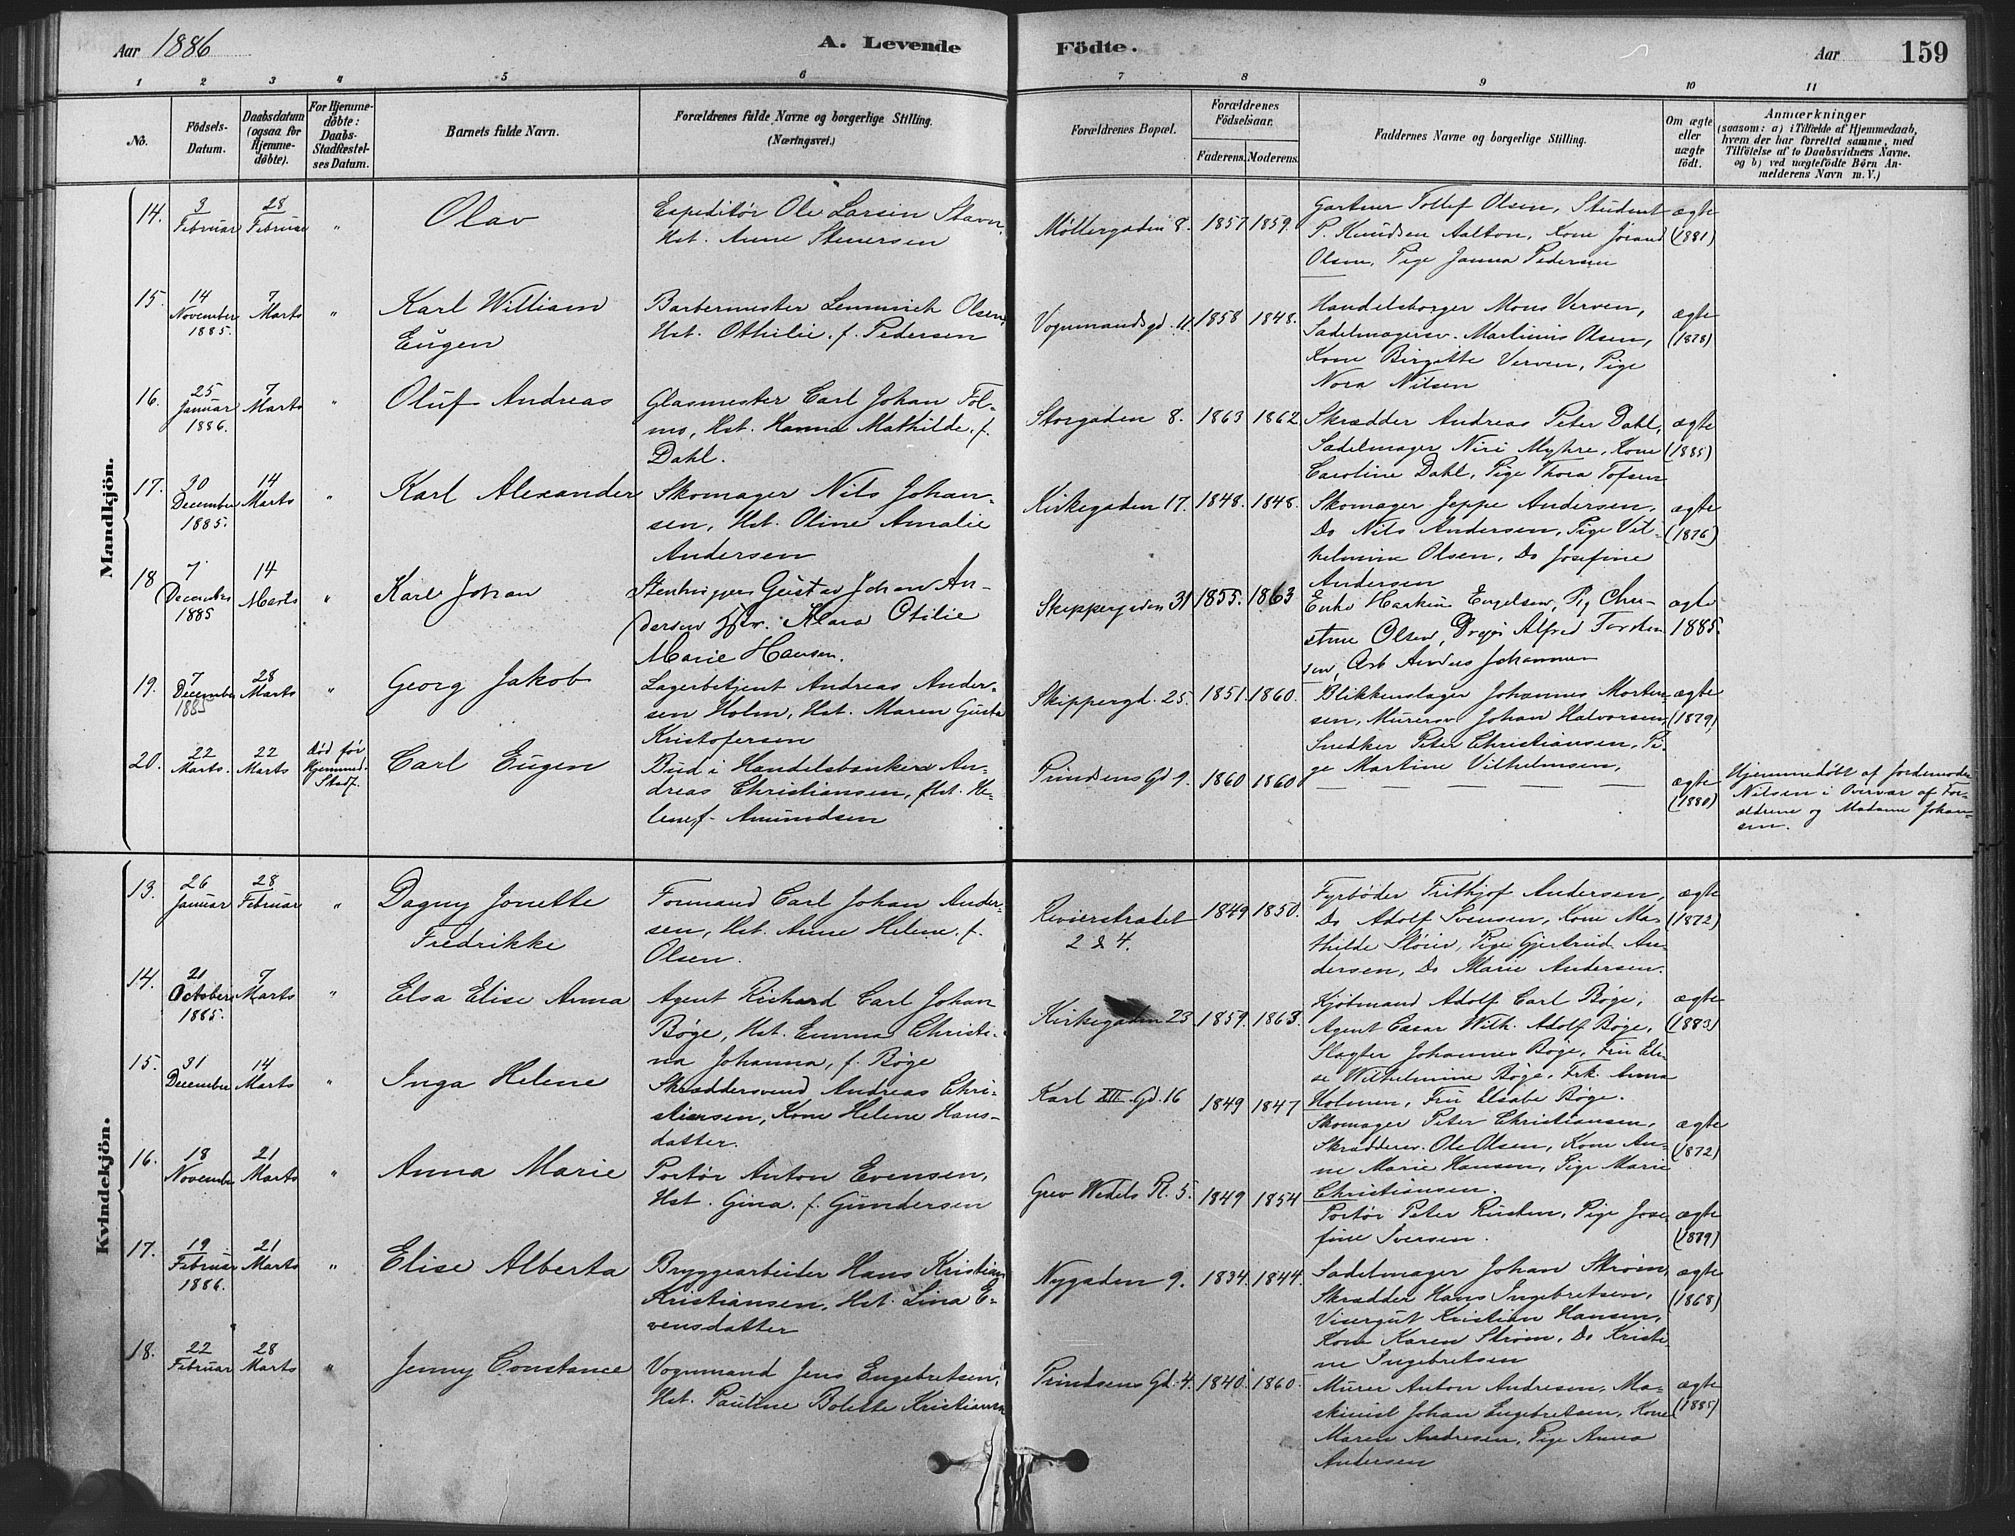 Aar 1886
A. Levende Födte.
Aar
159
1 2 3 4 5 6 7 8 9 10 11
No.
Födsels-Datum.
Daabsdatum (ogsaa for Hjemmedøbte).
For Hjemmedøbte: Daabs-Stadfæstelses Datum.
Barnets fulde Navn.
Forældrenes fulde Navne og borgerlige Stilling.
(Næringsvei.)
Forældrenes Bopæl.
Forældrenes Födselsaar.
Faderens. Moderens.
Faddernes Navne og borgerlige Stilling.
Om ægte eller uægte födt.
Anmærkninger
(saasom: a) i Tilfælde af Hjemmedaab,
hvem der har forrettet samme, med
Tilföielse af to Daabsvidners Navne.
og b) ved uægtefödte Börn An-
melderens Navn m. V.)
Mandkjön.
14. 3 Februar 28 Februar " Olav
Expeditør Ole Larsen Stavn,
Hst. Anne Stenersen
Møllergaden 8. 1857 1859.
Gartner Tollef Olsen, Student
P. Knudsen Aalton, Kone Jorand
Olsen, Pige Janna Pedersen
ægte (1881)
15. 14 November 1885. 7 Marts " Karl William
Eugen
Barbermester Lemmich Olsen,
Hst. Othilie f. Pedersen
Vognmandsgd. 11 1858 1848.
Handelsborger Mons Verven,
Sadelmagersv. Martinius Olsen,
Kone Birgitte Verven, Pige
Nora Nilsen
ægte (1878)
16. 25 Januar 1886. 7 Marts " Oluf Andreas
Glasmester Carl Johan Tol-
mo, Hst. Hanna Mathilde f.
Dahl.
Storgaden 8. 1863 1862
Skrædder Andreas Peter Dahl,
Sadelmager Niri Myhre, Kone
Caroline Dahl, Pige Thora Tofsen
ægte (1885)
17. 30 December 1885. 14 Marts " Karl Alexander
Skomager Nils Johan-
sen, Hst. Oline Amalie
Andersen
Kirkegaden 17. 1848. 1848.
Skomager Jeppe Andersen,
Do Nils Andersen, Pige Vil-
helmine Olsen, Do Josefine
Andersen
ægte (1876)
18 7 December 1885 14 Marts " Karl Johan
Stenhugger Gustav Johan An-
dersen Hst. Klara Otilie
Marie Hansen.
Skippergaden 31 1855. 1863
Enke Engelsen, Pig Chri-
stine Olsen, Alfred Torsten
sen, Arb Anders Johannesen
ægte 1885.
19. 7 December 1885 28 Marts " Georg Jakob
Lagerbetjent Andreas Ander-
sen Holm, Hst. Maren Gusta
Kristofersen
Skippergd. 25. 1851. 1860.
Blikkenslager Johannes Morten-
sen, Murersv Johan Halvorsen,
Snedker Peter Christiansen, Pi-
ge Martine Vilhelmsen,
ægte (1879)
20. 22 Marts. 22 Marts død før Hjemmed. Stadf. Carl Eugen
Bud i Handelsbanken An-
dreas Christiansen, Hst. He-
lene f. Amundsen
Prindsens Gd 9. 1860 1860
— — — — —
ægte (1880)
Hjemmedøbt af Jordemoder
Nilsen i Overvær af For-
ældrene og Madame Johan-
sen.
Kvindekjön.
13. 26 Januar 28 Februar " Dagny Jonette
Fredrikke
Formand Carl Johan Ander-
sen, Hst. Anne Helene f.
Olsen.
Revierstrædet
2 & 4. 1849 1850.
Fyrbøder Frithjof Andersen,
Do Adolf Svensen, Kone Ma-
thilde Støen, Pige Gjertrud An-
dersen, Do Marie Andersen.
ægte (1872)
14. 21 October 1885. 7 Marts " Elsa Elise Anna
Agent Richard Carl Johan
Bøge, Hst. Emma Christi-
na Johanna, f. Bøge
Kirkegaden 23 1859. 1863.
Kjøbmand Adolf Carl Bøge,
Agent Cæsar Wilh. Adolf Bøge,
Slagter Johannes Bøge, Fru Eli-
se Wilhelmine Bøge, Frk. Anna
Holmen, Fru Elsabe Bøge.
ægte (1883)
15. 31 December 14 Marts " Inga Helene
Skræddersvend Andreas Chri-
stiansen, Kone Helene Hans-
datter.
Karl XII. Gd. 16 1849 1847
Skomager Peter Christiansen,
Skræddersv. Ole Olsen, Kone An-
ne Marie Hansen, Pige Marie
Christiansen.
ægte (1872)
16. 18 November 21 Marts " Anna Marie
Portør Anton Evensen,
Hst. Gina f. Gundersen
Grev Wedels Pl. 5. 1849 1854
Portør Peter Rusten, Pige Jose-
fine Iversen.
ægte (1879)
17. 19 Februar 1886. 21 Marts " Elise Alberta
Bryggearbeider Hans Kristian
Kristiansen, Hst. Lina E-
vensdatter
Nygaden 9. 1834. 1844.
Sadelmager Johan Strøm,
Skrædder Hans Ingebretsen,
Visergut Kristian Hansen,
Kone Karen Strøm, Do Kristi-
ne Ingebretsen
ægte (1868)
18. 22 Februar 28 Marts " Jenny Constance
Vognmand Jens Engebretsen,
Hst. Pauline Bolette Kristiansen
Prindsens Gd. 4. 1840. 1860.
Murer Anton Andresen, Ma-
skinist Johan Engebretsen, Kone
Maren Andresen, Pige Anna
Andersen
ægte (1885)